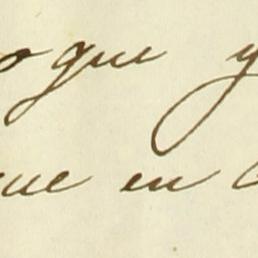 que y
que en